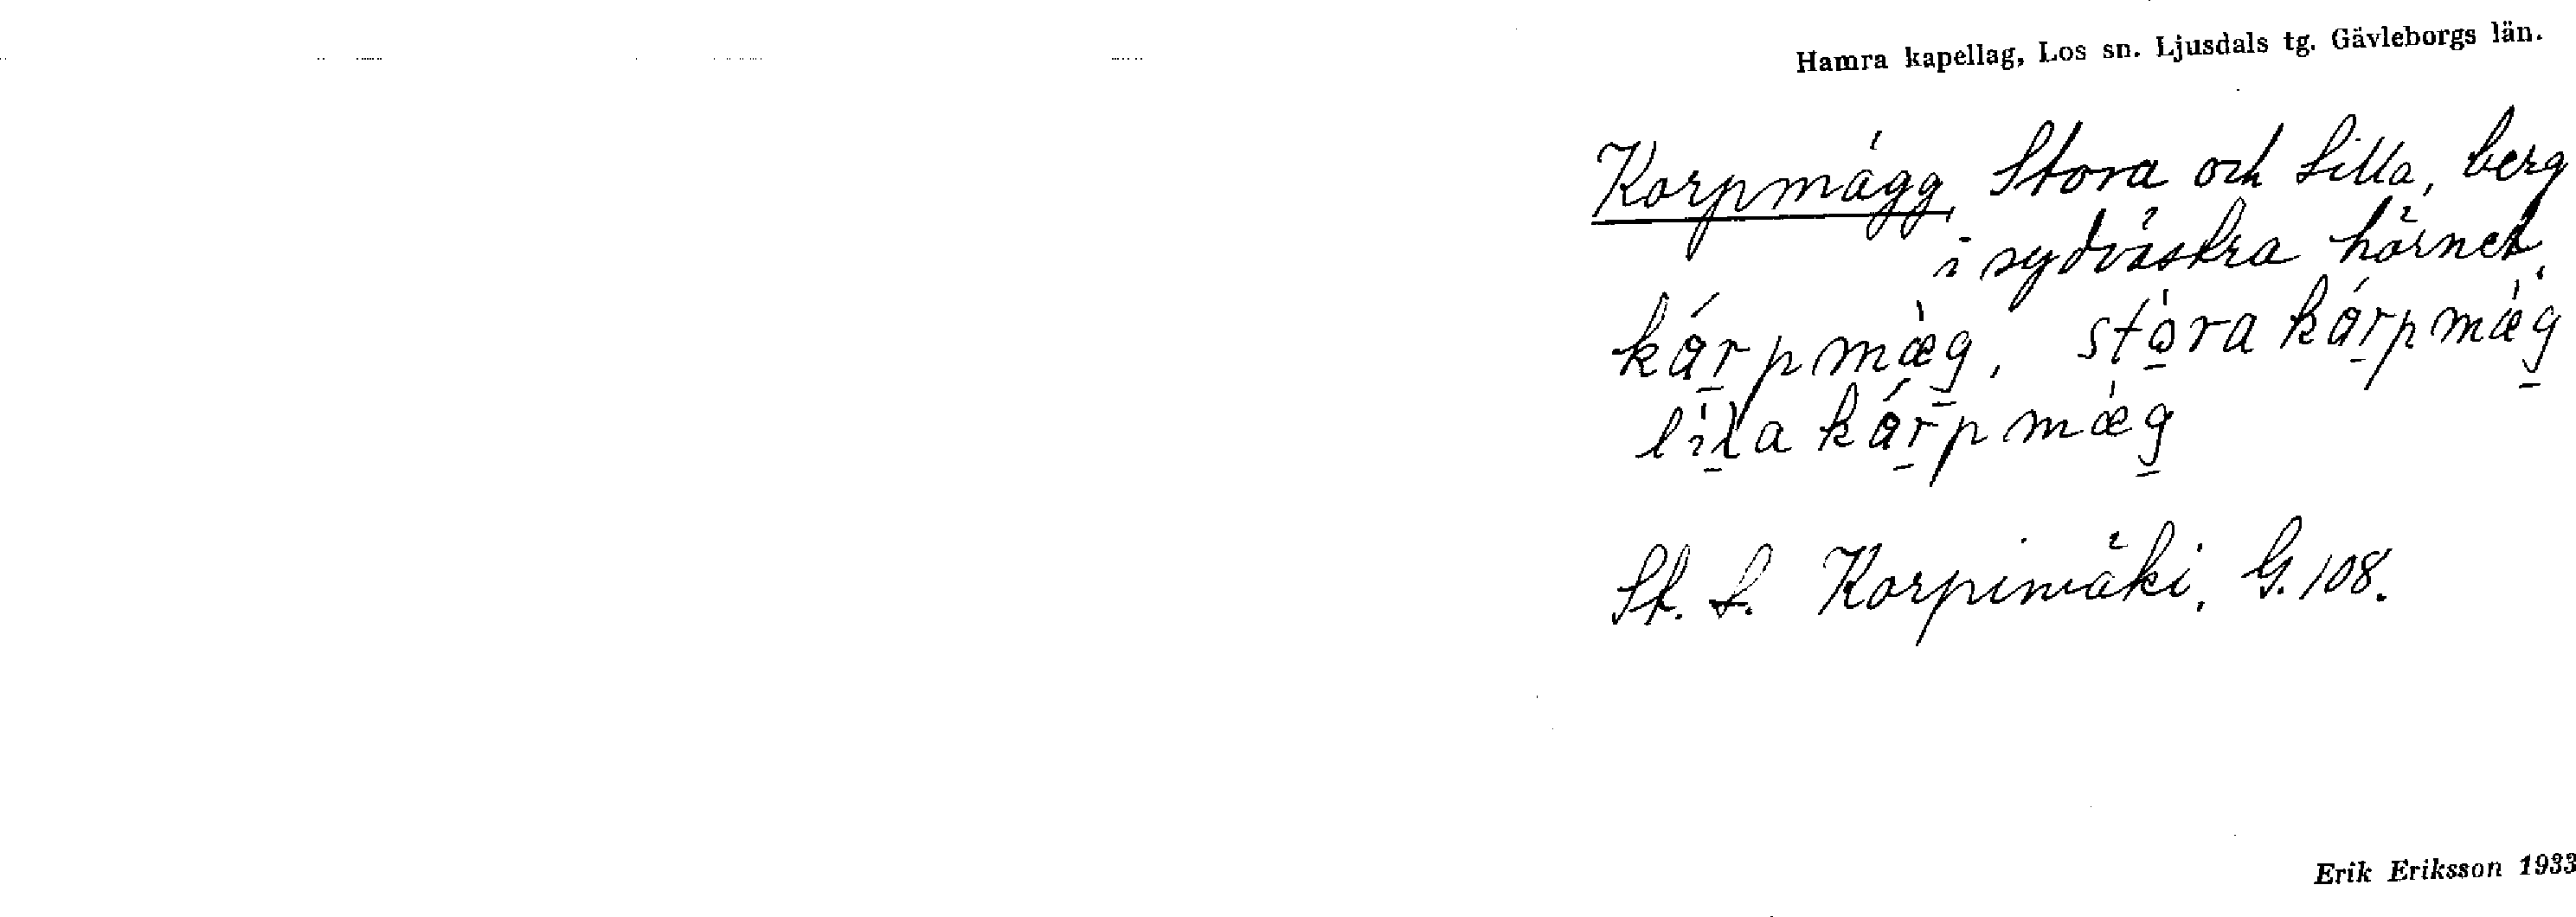 Hamra kapellag, Los sn. Ljusdals tg. Gävleborgs län.
Korpmägg, Stora och Lilla, berg
i sydvästra hörnet.
kárpmæ̀g, stòra kárpmæ̀g
lìla kárpmæ̀g
St. L. Korpimäki, G. 108.
Erik Eriksson 1933